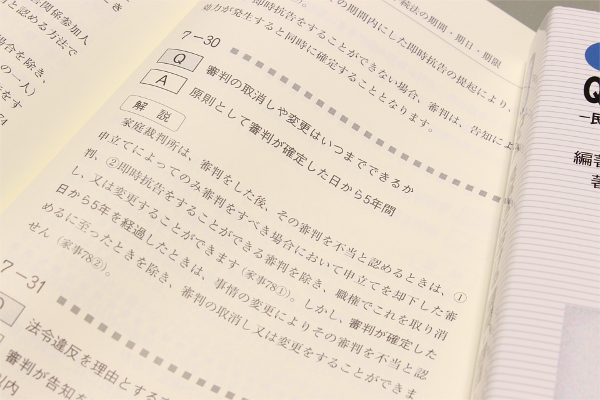 続法の期間・期日・期限
の期間内にした即時抗告の提起により、
即時抗告をすることができない場合、審判は、告知によ
効力が発生すると同時に確定することとなります。
7－30
Q 審判の取消しや変更はいつまでできるか
A 原則として審判が確定した日から5年間
解説
家庭裁判所は、審判をした後、その審判を不当と認めるときは、①
申立てによってのみ審判をすべき場合において申立てを却下した審
判、②即時抗告をすることができる審判を除き、職権でこれを取り消
し、又は変更することができます（家事78①）。しかし、審判が確定した
日から5年を経過したときは、事情の変更によりその審判を不当と認
めるに至ったときを除き、審判の取消し又は変更をすることができま
せん（家事78②）。
7－31
法令違反を理由とする
審判が告知を
以内
害関係参加人
と認める方法で
場合を除き、
の一人）
をす
Q
―民
編著
著